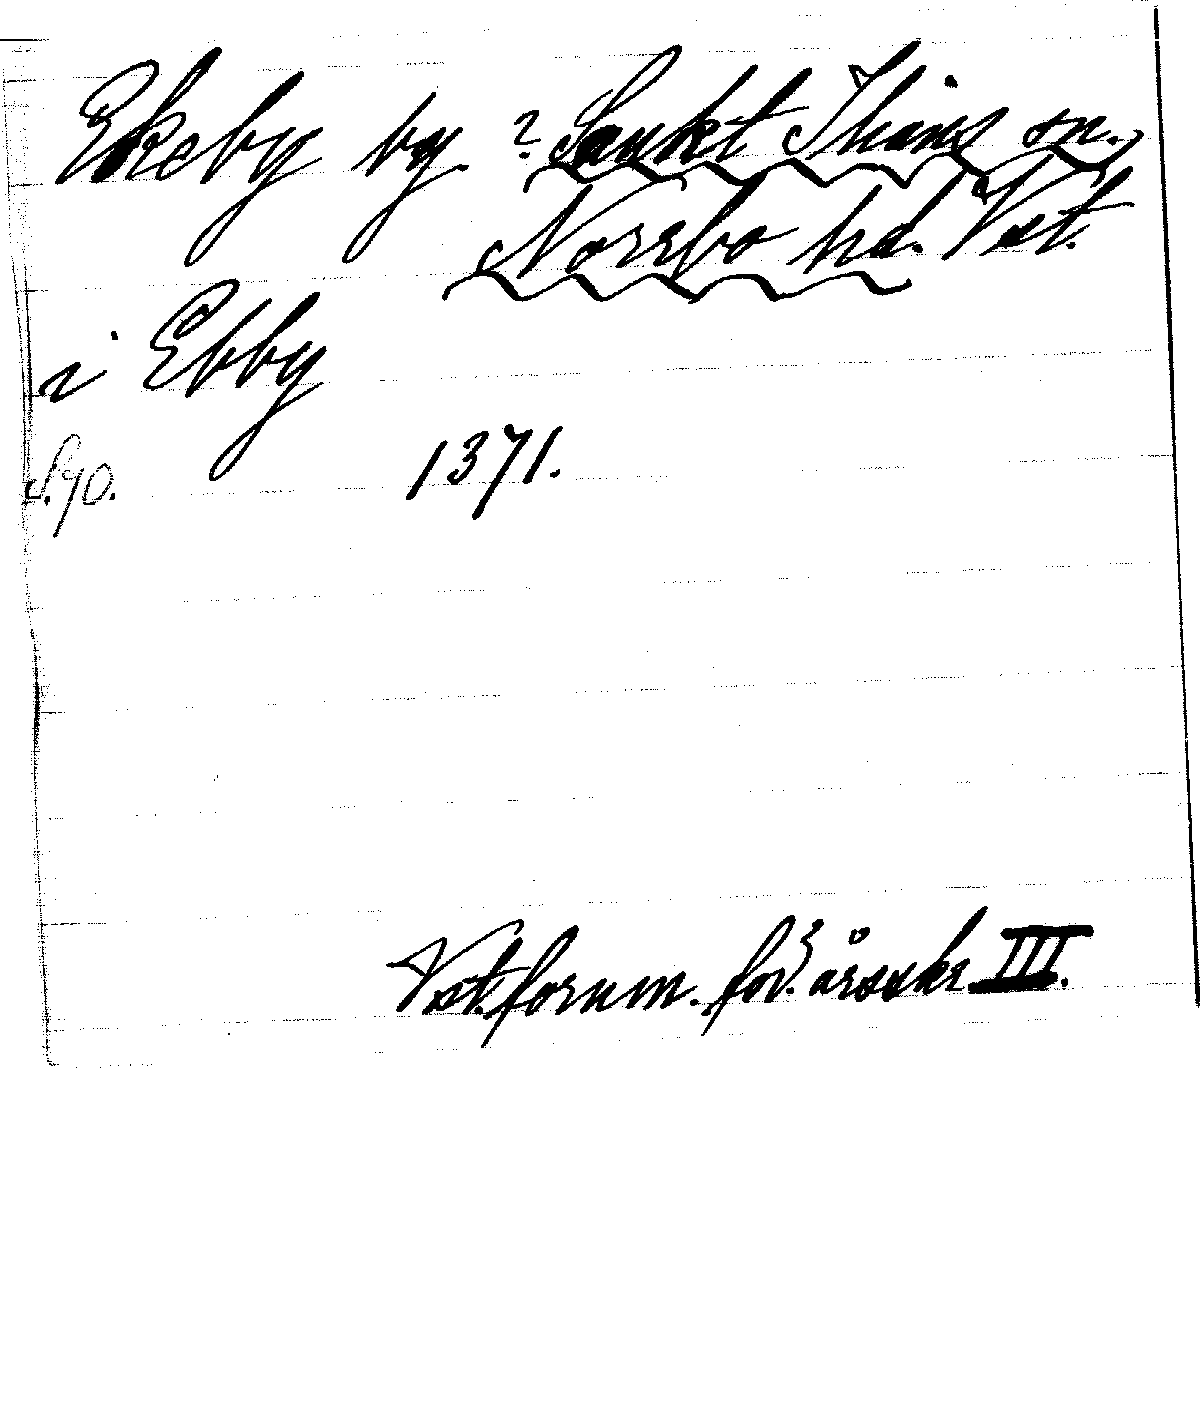 Ekeby by ? Sankt Ihans sn.,
Norrbo hd. Vst.
i Ebby
S. 90. 1371.
Vst. fornm. för:s årsskr. III.